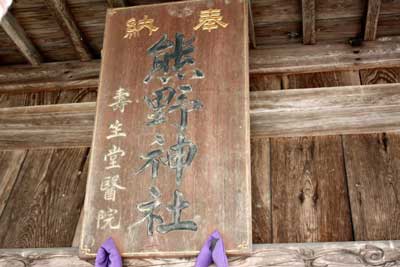 奉納
熊野神社
壽生堂醫院